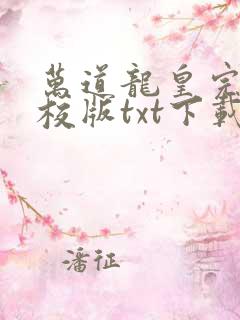 萬道龍皇完
校版txt下載
潘征